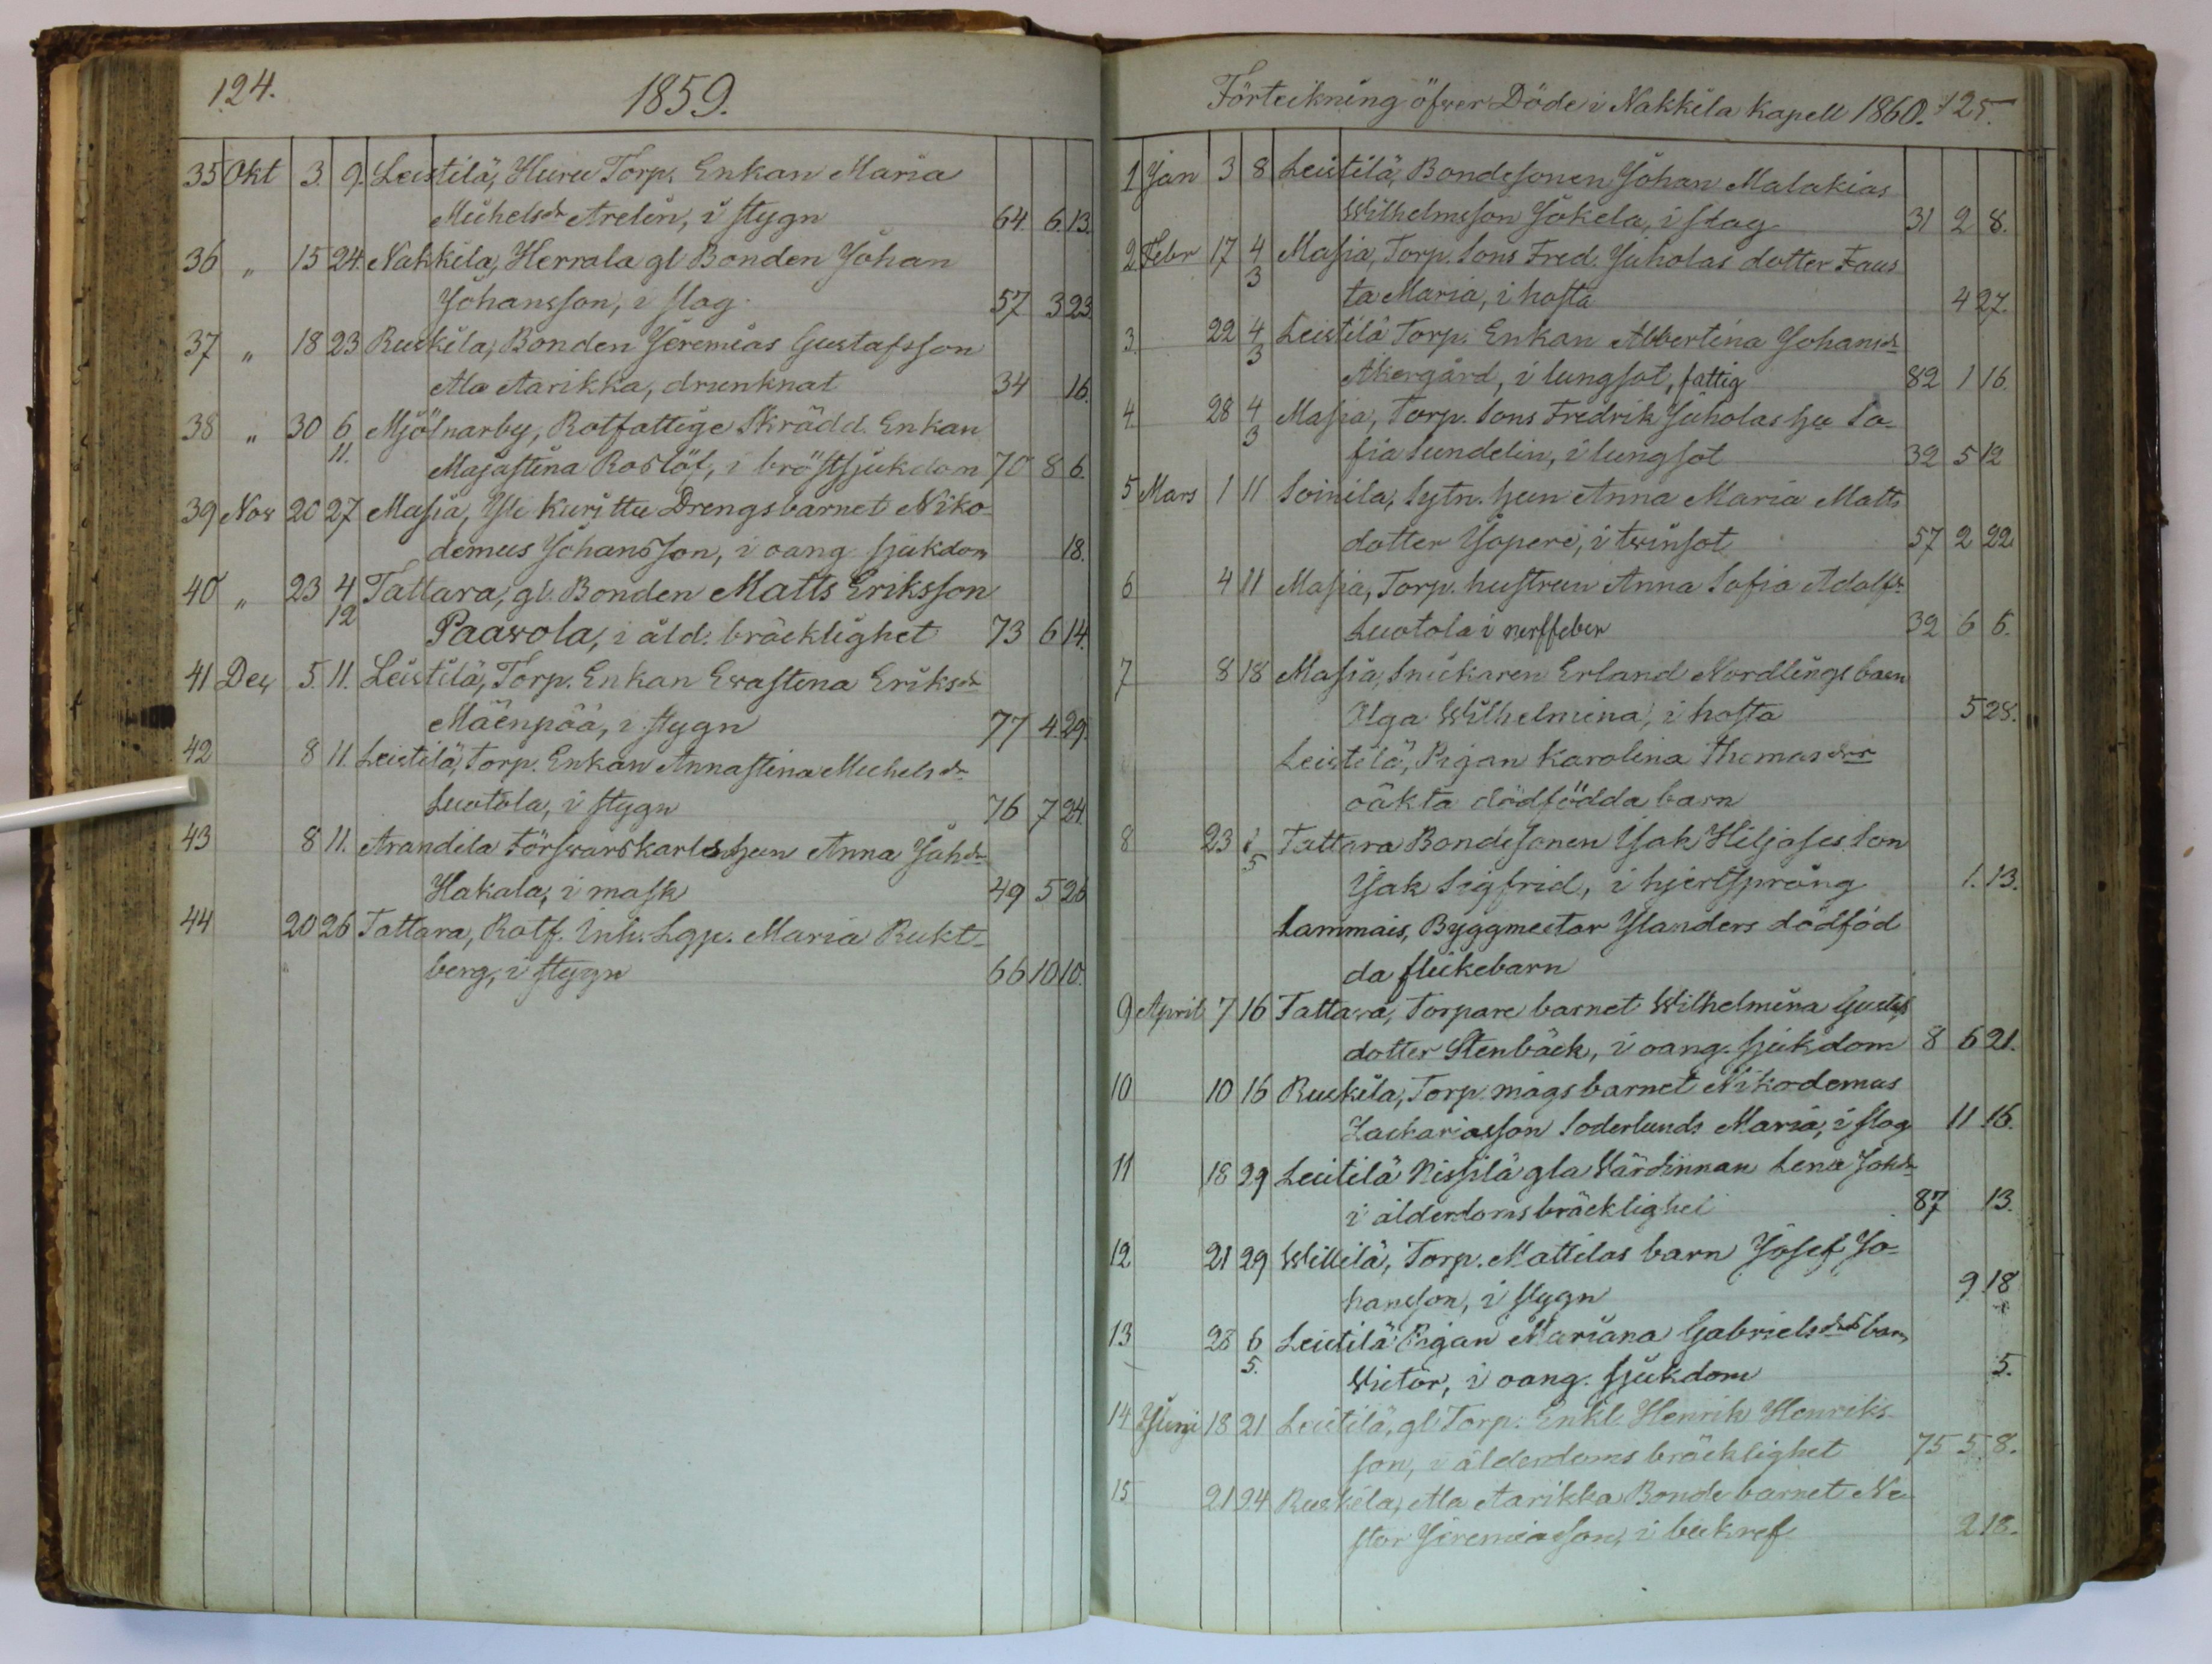 124.
1859.
35 Okt 3. 9. Leistilä, Huru Torp. Enkan Maria
Michelsdr Arelin, i stygn 64. 6. 13.
36 " 15 24. Nakkila, Herrala gl. Bonden Johan
Johansson, i slag. 57 3 23.
37 " 18 23 Ruskila, Bonden Jeremias Gustafsson
Ala Aarikka, drunknat 34 16.
38 " 30 6/11. Mjölnarby, Rotfattige Skrädd. Enkan
Majastina Roslöf, i bröstsjukdom 70 8 6.
39 Nov 20 27 Masia, Yli Kurittu Drengsbarnet Niko-
demus Johansson, i oang sjukdom 18.
40 " 23 4/12 Tattara, gl. Bonden Matts Eriksson
Paavola, i åld. bräcklighet 73 6 14.
41 Dec 5. 11. Leistilä, Torp. Enkan Evastina Eriksdr
Mäenpää, i stygn 77 4. 29.
42 8 11. Leistilä, Torp. Enkan Annastina Michelsdr
Luotola, i stygn 76 7 24.
43 8 11. Arandila Försvarskarls hun Anna Johdr
Hakala, i mask 49 5 26
44 20 26 Tattara, Rotf. Inh. Lgp. Maria Rukt-
berg, i stygn 66 10 10.
Förteikning öfver Döde i Nakkila Kapell 1860. 125.
1 Jan 3 8 Leistilä, Bondesonen Johan Malakias
Wilhelmsson Jokela, i slag 31 2 8.
2 Febr 17 4/3 Masia, Torp. Sons Fred. Juholas dotter Faus
ta Maria, i hosta 4 27.
3. 22 4/3 Leistilä Torp. Enkan Albertina Johansdr
Åkergård, i lungsot, fattig 82 1 16.
4 28 4/3 Masia, Torp. Sons Fredrik Juholas hu So-
fia Sundelin, i lungsot 32 5 12
5 Mars 1 11 Soinila, Sytn. hun Anna Maria Matts
dotter Joperi, i tvinsot 57 2 22
6 4 11 Masia, Torp. hustrun Anna Sofia Adolfs-
Luotola i nerffeber 32 6 6.
7 8 18 Masia, Snickaren Erland Nordlings barn
Olga Wilhelmina, i hosta 5 28.
Leistilä, Pigan Karolina Thomasdrs
oäkta dödfödda barn
8 23 1/5 Tattara Bondesonen Isak Hiljases Son
Isak Sigfrid, i hjertsprång 1. 13.
Lammais, Byggmestar Ylanders dödföd
da flickebarn
9 April 7 16 Tattara, Torpare barnet Wilhelmina Gustafs
dotter Stenbäck, i oang. sjukdom 8 6 21.
10 10 16 Ruskila, Torp. mågs barnet Nikodemus
Zackariasson Soderlunds Maria, i slag 11 16.
11 18 29 Leistilä Nissilä gla Värdinnan Lena Johdr
i ålderdomsbräcklighet 87 13.
12 21 29 Willilä, Torp. Mattilas barn Josef Jo-
hansson, i stygn 9 18
13 28 6/5. Leistilä Pigan Mariana Gabrielsdrs barn
Victor, i oang. sjukdom 5.
14 Juni 18 21 Leistilä, gl. Torp. Enkl. Henrik Henriks-
son, i ålderdoms bräcklighet 75 5 8.
15 21 24 Ruskila, Ala Aarikka Bonde barnet Ne
stor Jeremiasson, i bukref 2 18.